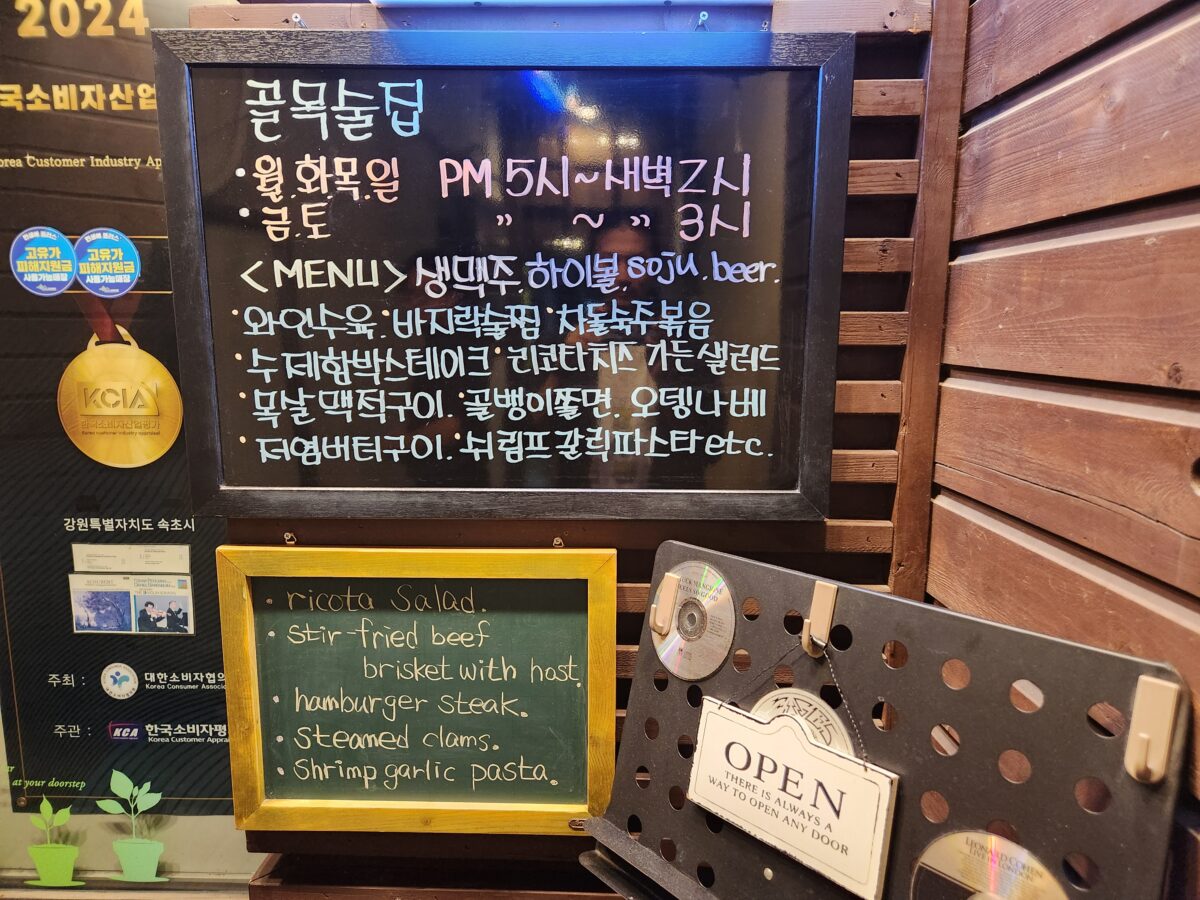 2024
국소비자산업
orea Customer Industry Ap
고유가
피해지원금
사용가능매장
고유가
피해지원금
사용가능매장
KCIA
한국소비자산업평가
Korea customer industry appraisal
강원특별자치도 속초시
SCHUBERT
주최 : 대한소비자협의
Korea Consumer Associ
주관 : KCA 한국소비자평
Korea Customer Apprai
at your doorstep
골목술집
•월.화.목.일 PM 5시~새벽2시
•금.토 " ~ " 3시
<MENU> 생맥주.하이볼.soju.beer.
•와인수육.•바지락술찜 •차돌숙주볶음
•수제함박스테이크 •리코타치즈 가든샐러드
•목살맥적구이.•골뱅이쫄면.오뎅나베
•저염버터구이.•쉬림프갈릭파스타etc.
• ricota Salad.
• stir-fried beef
brisket with host.
• hamburger steak.
• steamed clams.
• Shrimp garlic pasta.
CHUCK MANGIONE
FEELS SO GOOD
OPEN
THERE IS ALWAYS A
WAY TO OPEN ANY DOOR
LEONARD COHEN
LIVE IN LONDON